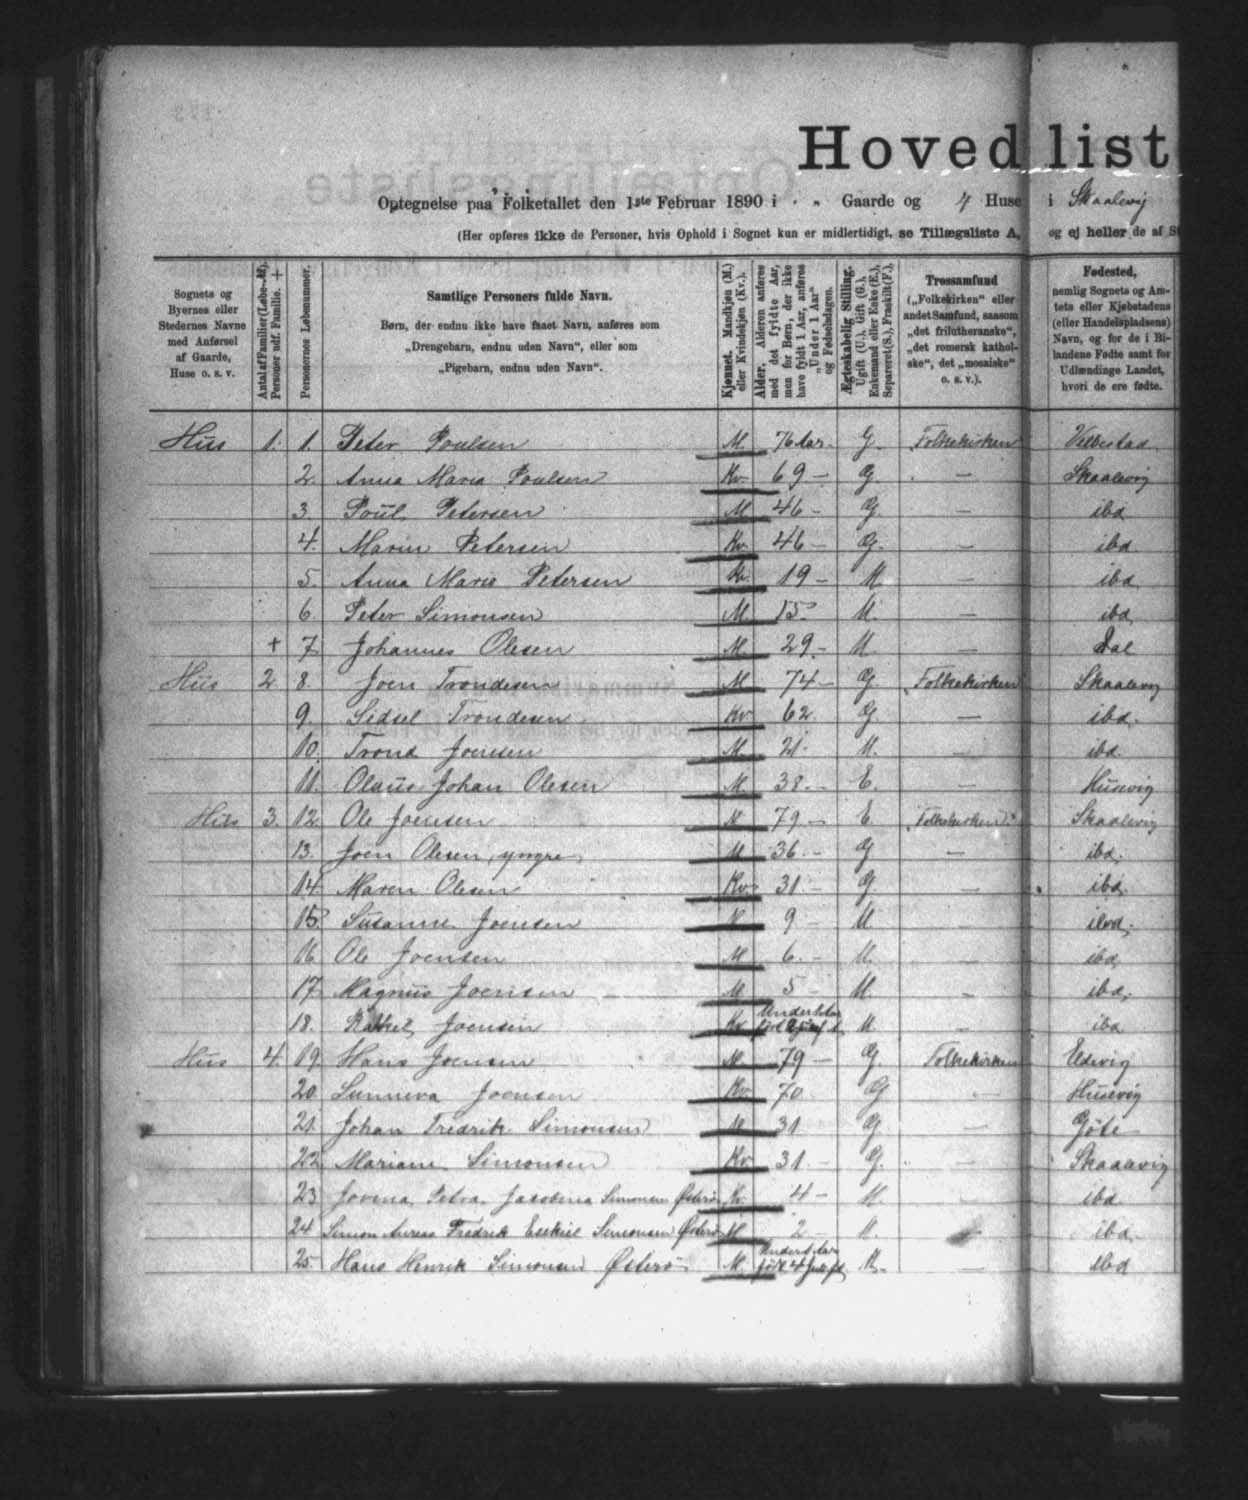 Hovedlist
Optegnelse paa Folketallet den 1ste Februar 1890 i " " Gaarde og 4 Huse i Skaalevig
(Her opføres ikke de Personer, hvis Ophold i Sognet kun er midlertidigt, se Tillægsliste A, og ej heller de af St
Sognets og Byernes eller Stedernes Navne med Anførsel af Gaarde, Huse o. s. v.
Antal af Familier (Løbe-№). Personer udf. Familie. +
Personernes Løbenummer.
Samtlige Personers fulde Navn.
Børn, der endnu ikke have faaet Navn, anføres som
„Drengebarn, endnu uden Navn“, eller som
„Pigebarn, endnu uden Navn“.
Kjønnet. Mandkjøn (M.) eller Kvindekjøn (Kv.).
Alder. Alderen anføres med det fyldte Aar, men for Børn, der ikke have fyldt 1 Aar, anføres „Under 1 Aar“ og Fødselsdagen.
Ægteskabelig Stilling. Ugift (U.), Gift (G.), Enkemand eller Enke (E.), Separeret (S.), Fraskilt (F.).
Trossamfund („Folkekirken“ eller andet Samfund, saasom „det frilutheranske“, „det romersk katholske“, det „mosaiske“ o. s. v.).
Fødested, nemlig Sognets og Amtets eller Kjøbstadens (eller Handelspladsens) Navn, og for de i Bilandene Fødte samt for Udlændinge Landet, hvori de ere fødte.
Hus 1. 1. Peter Poulsen M. 76 Aar. G. „Folkekirken“ Velbestad
2. Anna Maria Poulsen Kv. 69 – G – Skaalevig
3. Poul Petersen M 46 – G. – ibd
4. Maren Petersen Kv. 46 – G. – ibd
5. Anna Marie Petersen Kv. 19 – U. – ibd
6. Peter Simonsen M. 15 U. – ibd
+ 7. Johannes Olesen M. 29 – U. – Dal
Hus 2. 8. Joen Trondesen M 74 – G. „Folkekirken“ Skaalevig
9. Sidsel Trondesen Kv. 62. G. – ibd.
10. Trond Joensen M. 21. U. – ibd.
11. Olaus Johan Olesen M. 38. – E. – Husevig
Hus 3. 12. Ole Joensen M 79 – E. „Folkekirken“ Skaalevig
13. Joen Olesen, yngre M 36. – G – ibd.
14. Maren Olesen Kv. 31. – G. – ibd.
15. Susanne Joensen K 9 – U – ibd.
16. Ole Joensen M 6. – U. – ibd
17. Magnus Joensen M 5 – U. – ibd.
18. Rakkel Joensen Kv Under 1 Aar U – ibd
Hus 4. 19. Hans Joensen M. 79 – G. Folkekirken Eldevig
20. Sunneva Joensen Kv. 70 G – Husevig
21. Johan Fredrik Simonsen M. 31 G – Göte
22. Mariane Simonsen Kv. 31. – G. – Skaalevig
23 Jovina Petra Jacobina Simonsen Østerø Kv. 4 – U. – ibd
24 Simon Andreas Fredrik Esekiel Simonsen Østerø M 2 – U. – ibd.
25. Hans Henrik Simonsen Østerø M. Under 1 Aar født 4 Juli U. – ibd